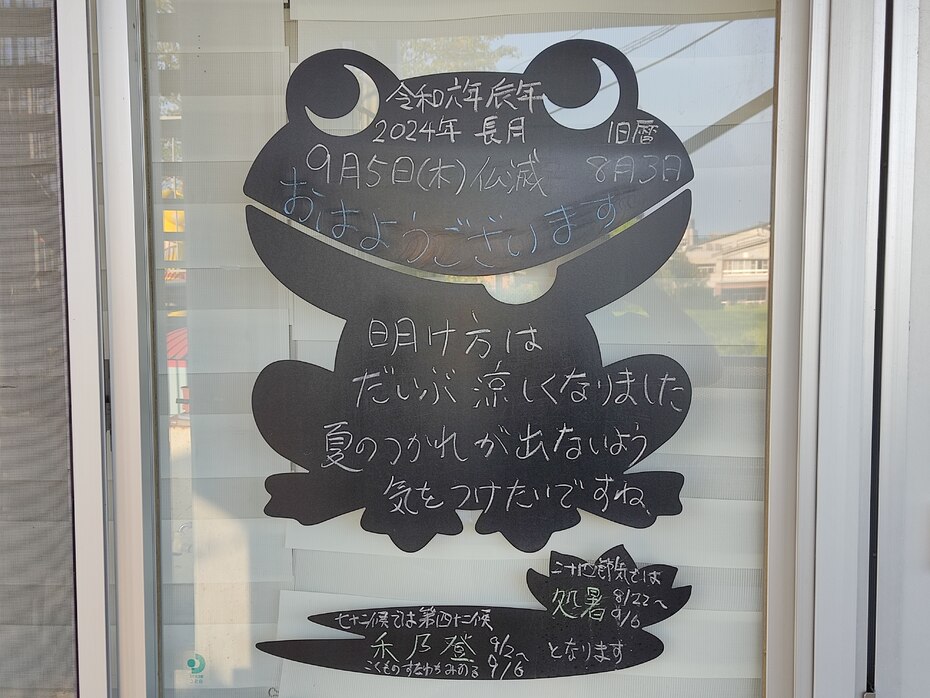 令和六年辰年
2024年 長月 旧暦
9月5日(木)仏滅 8月3日
おはようございます
明け方は
だいぶ 涼しくなりました
夏のつかれが出ないよう
気をつけたいですね、
二十四節気では
処暑 8/22〜
9/6
七十二候では第四十二候
禾乃登 9/2〜
こくものすなわちみのる 9/6
となります